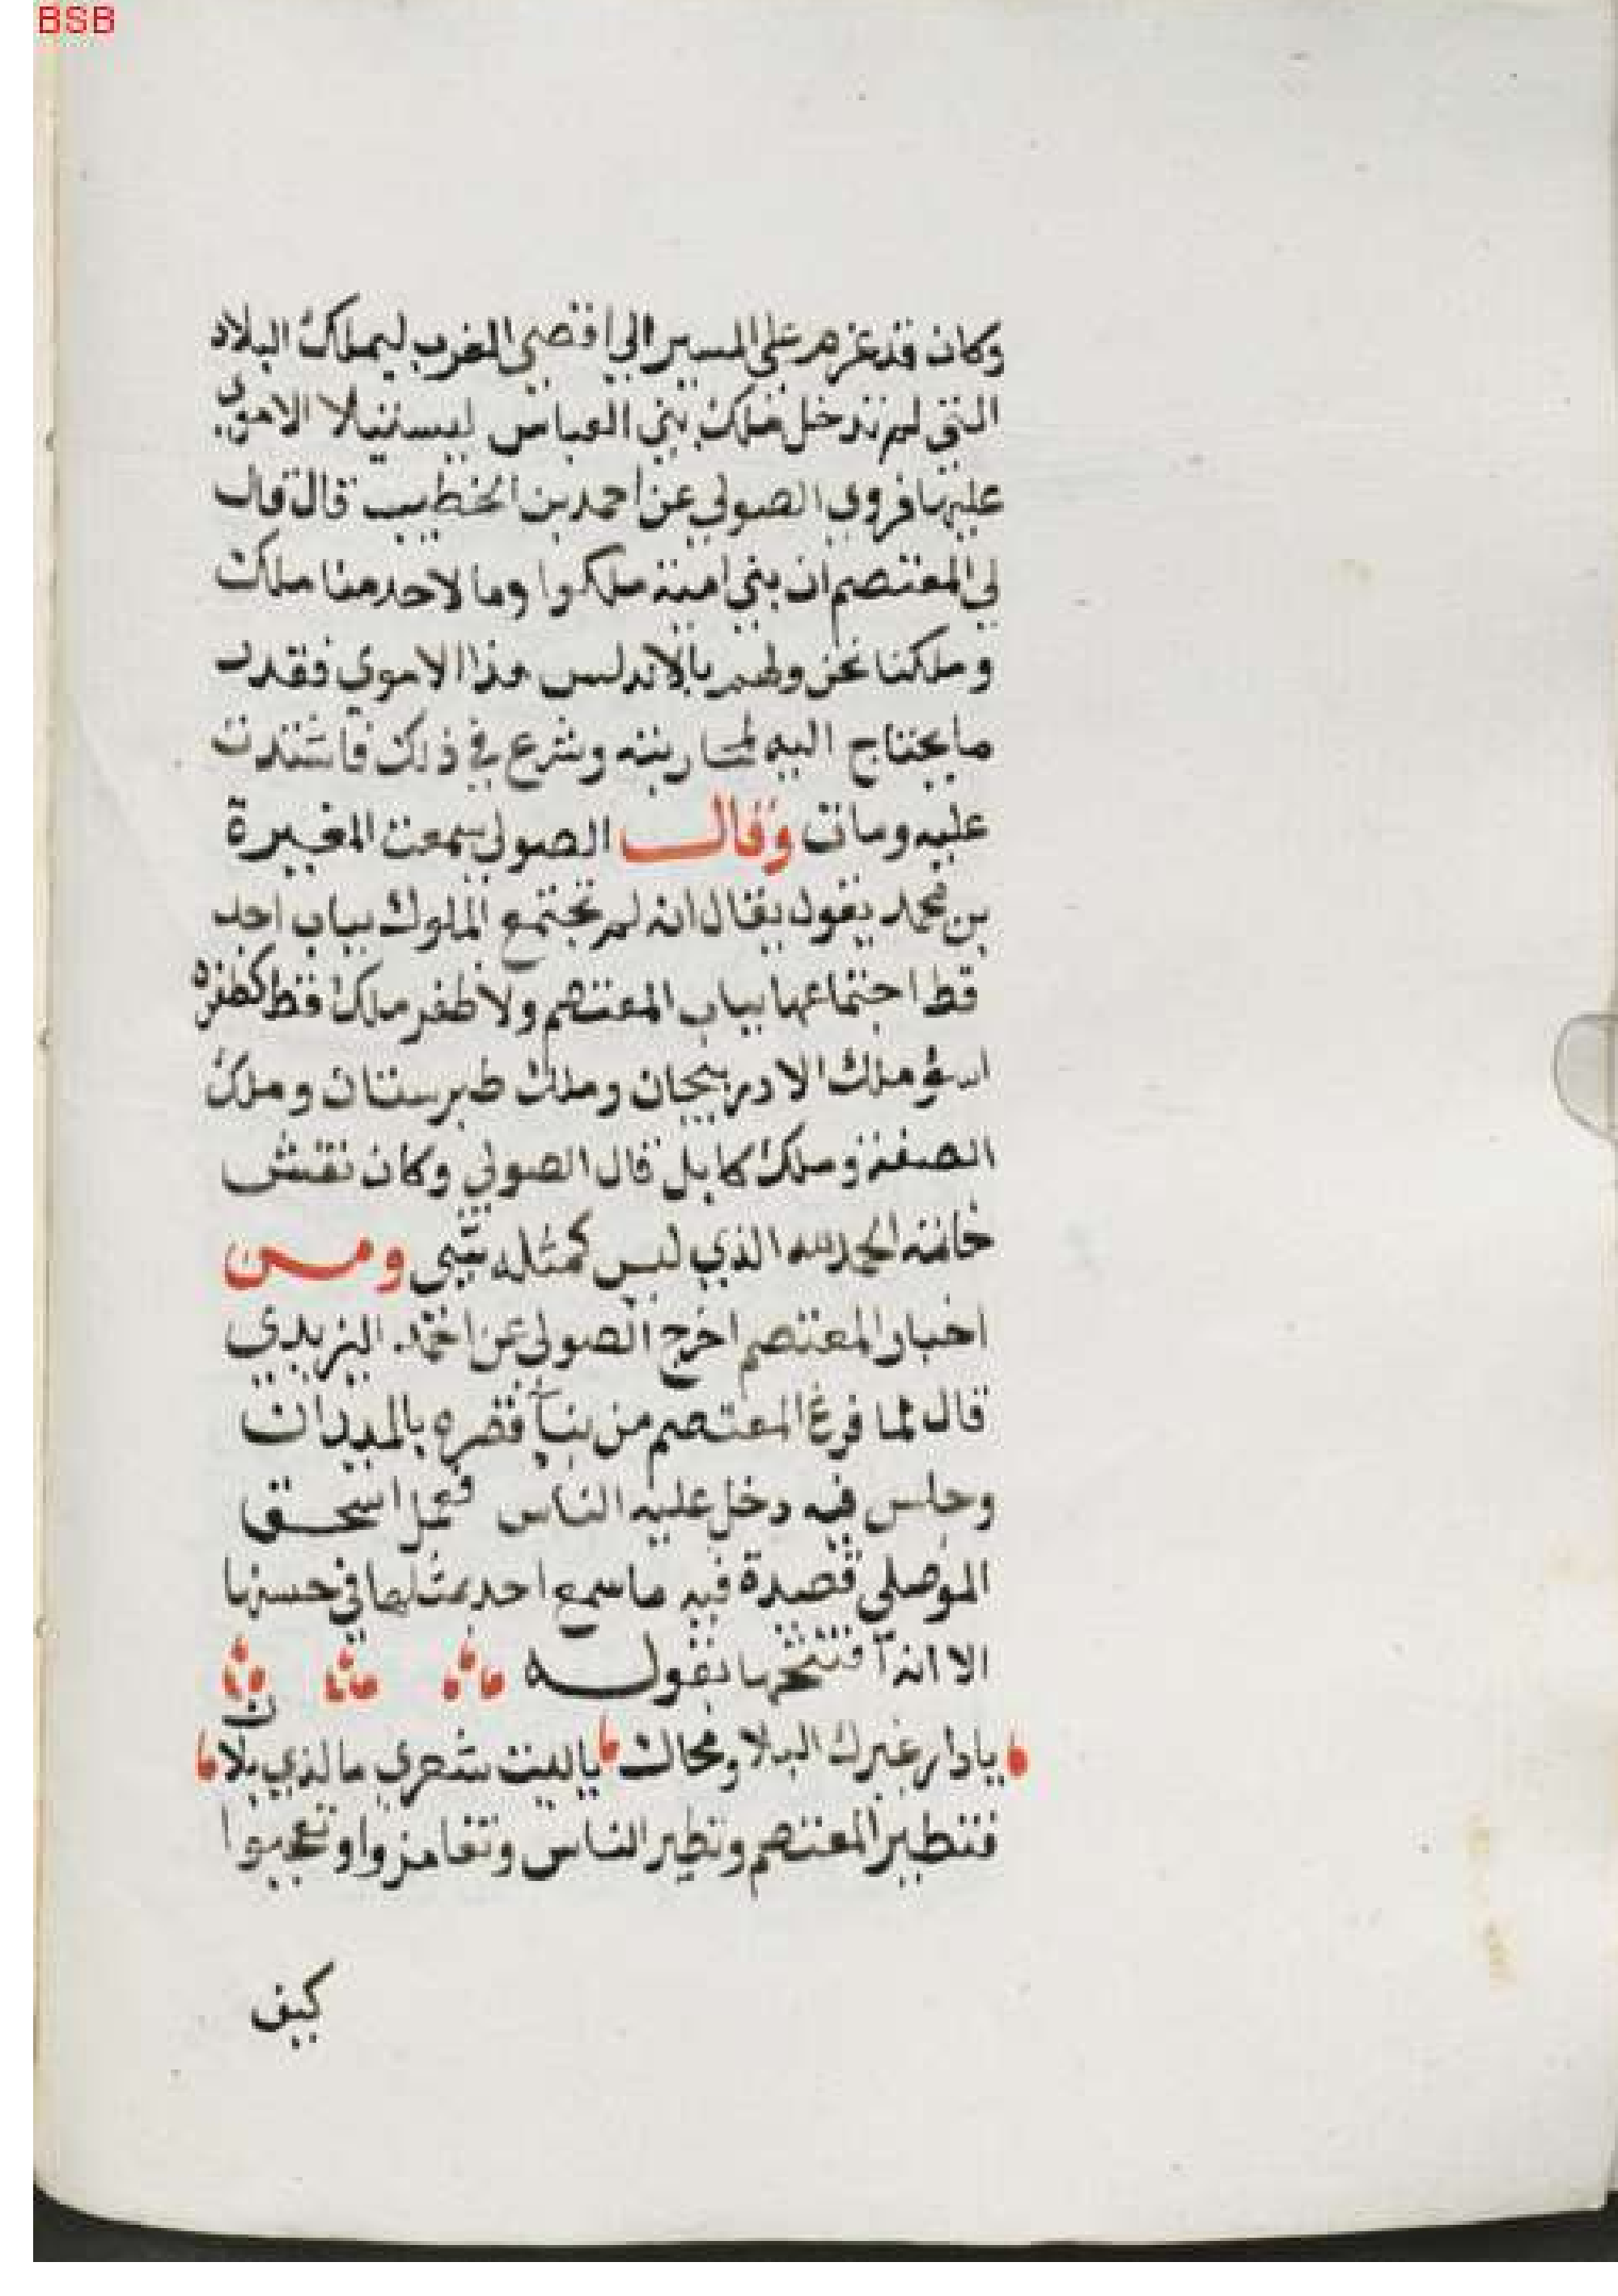 BSB
وكان قد عزم على المسير الى اقصى المغرب ليملك البلاد
التي لم تدخل ملك بني العباس ليستيلا الاموي
عليها فروي الصولي عن احمد بن الخطيب قال قال
لي المعتصم ان بني امية ملكوا وما لاحد منا ملك
وملكنا نحن ولهم بالاندلس هذا الاموي فقدر
ما يحتاج اليه لمحاربته وشرع في ذلك فاشتدت
عليه ومات وقال الصولي سمعت المغيرة
بن محمد يقول يقال انه لم تجتمع الملوك بباب احد
قط اجتماعها بباب المعتصم ولا ظفر ملك قط كظفره
ملك الادربيجان وملك طبرستان وملك
وملك كابل قال الصولي وكان نقش
خاتمه الحمد لله الذي ليس كمثله شي ومن
اخبار المعتصم اخرج الصولي عن احمد اليزيدي
قال لما فرغ المعتصم من بنآ قصره بالميدان
وجلس فيه دخل عليه الناس فعمل اسحق
الموصلي قصيدة فيه ما سمع احد بمثلها في حسنها
الا انه آفتتحها بقوله
يا دار غيرك البلا ومحاك يا ليت شعري ما لذي بلاك
فتطير المعتصم وتطير الناس وتغامزوا وتعجبوا
كيف